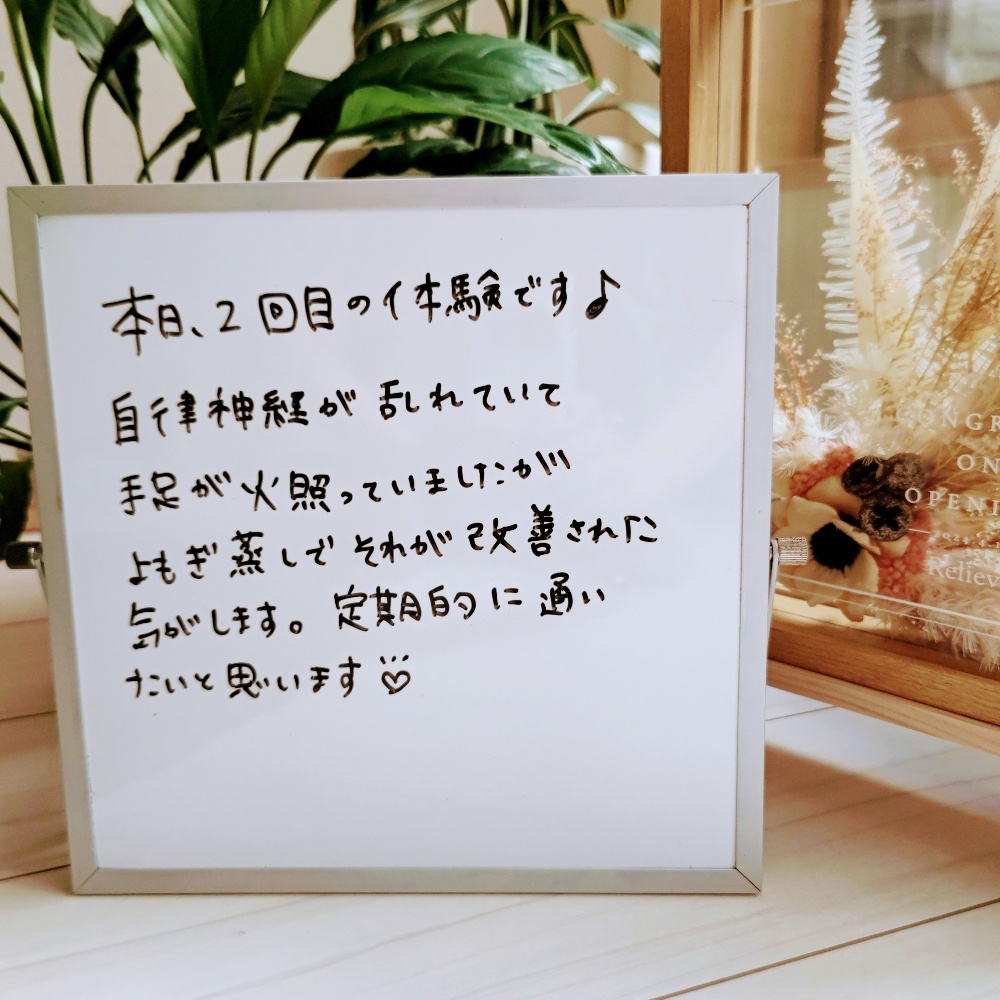 本日、2回目の体験です♪
自律神経が乱れていて
手足が火照っていましたが
よもぎ蒸しでそれが改善された
気がします。定期的に通い
たいと思います♡
ONGR
ON
OPENI
Reliev